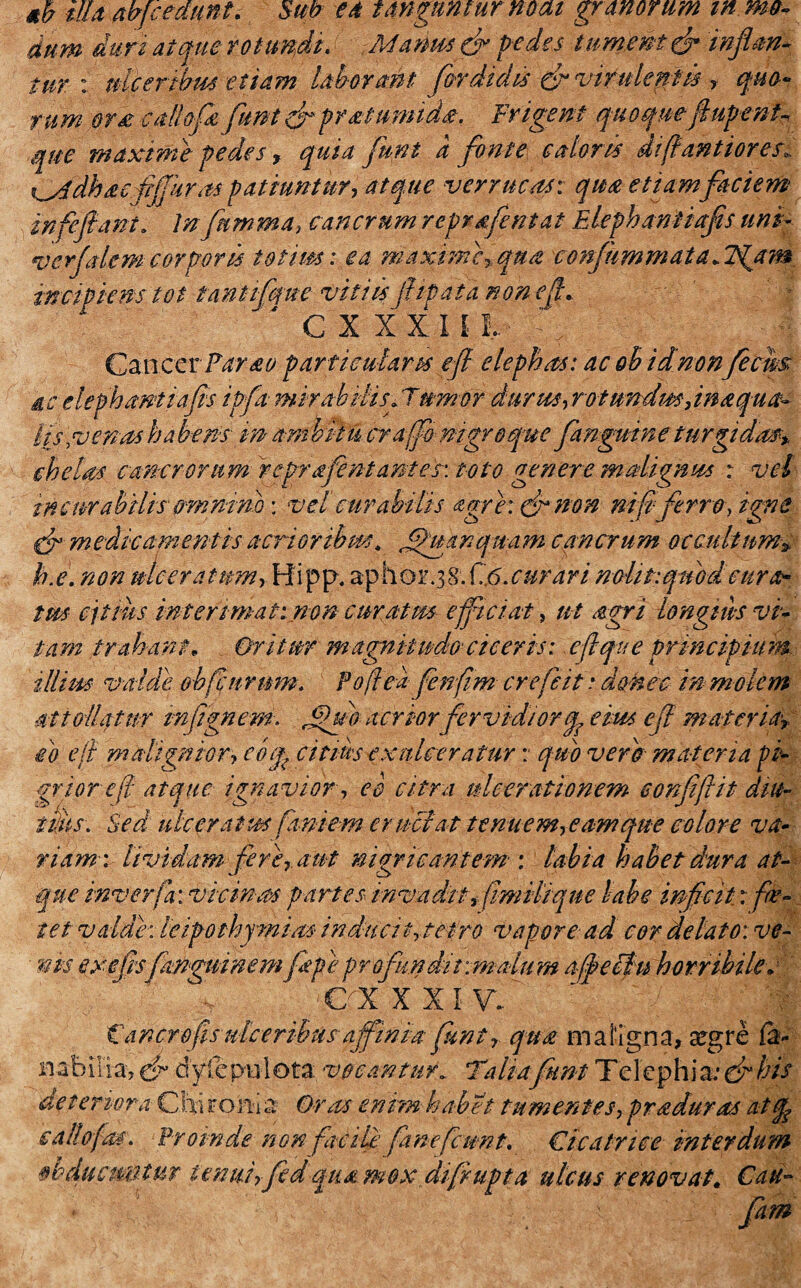 ab illa abſcedunt. Sub ea tanguntur nodi granorum in mo-
dum duri atque rotundi. Manus & pedes tument & inflan-
tur : ulceribus etiam laborant ſordidis & virulentis, quo-
rum oræ calloſæ ſunt & prætumidæ. Frigent quoque ſtupent-
que maxime pedes, quia ſunt à fonte caloris diſtantiores.
Adhæc fiſſuras patiuntur, atque verrucas: quæ etiam faciem
infeſtant. In ſumma, cancrum repræſentat Elephantiaſis uni-
verſalem corporis totius: ea maximè, quæ conſummata. Nam
incipiens tot tantiſque vitiis ſtipata non eſt.
CXXXIII.
Cancer Paræo particularis eſt elephas: ac ob id non ſecus
ac elephantiaſis ipſa mirabilis. Tumor durus, rotundus, inæqua-
lis, venas habens in ambitu craſſo nigroque ſanguine turgidas,
chelas cancrorum repræſentantes: toto genere malignus : vel
incurabilis omnino : vel curabilis ægrè: & non niſi ferro, igne
& medicamentis acrioribus. Quanquam cancrum occultum,
h.e. non ulceratum, Hipp. aphor.38. ſ.6. curari nolit: quòd cura-
tus citiùs interimat: non curatus efficiat, ut ægri longiùs vi-
tam trahant. Oritur magnitudo ciceris: eſtque principium
illius valdè obſcurum. Poſteà ſenſim creſcit: donec in molem
attollatur inſignem. Quò acrior fervidiorq; eius eſt materia,
eò eſt malignior, eòq; citiùs exulceratur : quò verò materia pi-
grior eſt atque ignavior, eò citra ulcerationem conſiſtit diu-
tiùs. Sed ulceratus ſaniem eructat tenuem, eamque colore va-
riam: lividam ferè, aut nigricantem : labia habet dura at-
que inverſa: vicinas partes invadit, ſimilique labe inficit: fœ-
tet valdè: leipothymias inducit, tetro vapore ad cor delato: ve-
nis exeſis ſanguinem ſæpè profundit: malum aſpectu horribile.
CXXXIV.
Cancroſis ulceribus affinia ſunt, quæ maligna, ægrè ſa-
nabilia, & dyſepulota vocantur. Talia ſunt Telephia: & his
deteriora Chironia Oras enim habēt tumentes, præduras atq;
calloſas. Proinde non facilè ſaneſcunt. Cicatrice interdum
obducuntur tenui, ſed quæ mox diſrupta ulcus renovat. Cau-
ſam